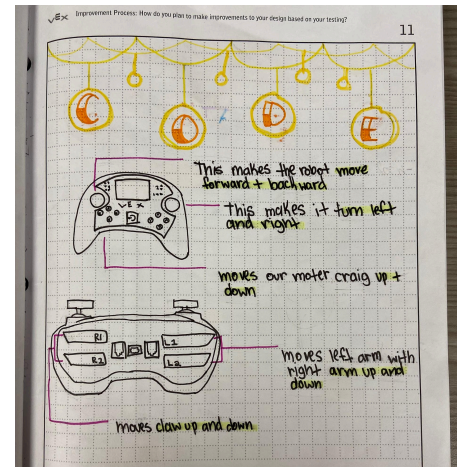 VEX Improvement Process: How do you plan to make improvements to your design based on your testing?
11
C O D E
This makes the robot move
forward + backward
VEX
This makes it turn left
and right
moves our moter craig up +
down
R1 L1
R2 L2
moves left arm with
right arm up and
down
moves claw up and down